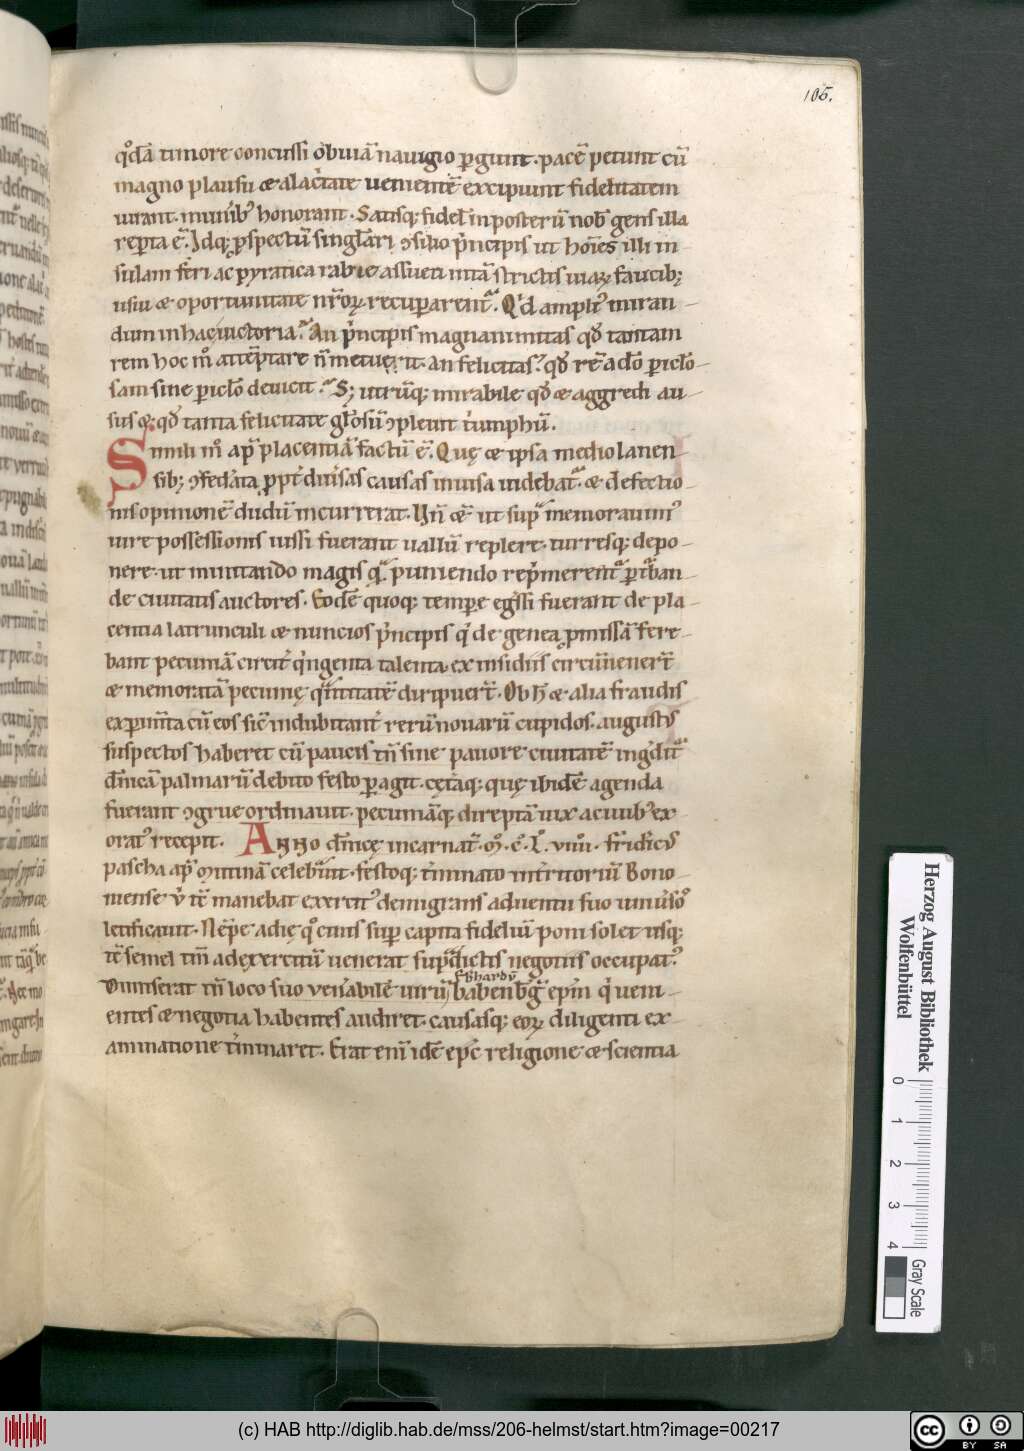 105.
q̊dā timore concussi obuiā nauigio ꝑgunt. pacē petunt cū
magno plausu & alac̓tate uementē excipiunt fidelitatem
iurant. munib᷒ honorant. Satisq; fidel̄ in posterū nob̄ gens illa
reꝑta ē. Idq; ꝓspectū singl̄ari ꝯsilio p̓ncipis ut hoīes illi in-
sulam feri ac pyratica rabie assueti intā strictis uiaꝝ faucib;
usui & oportunitate nr̄oꝝ recuꝑarent᷑. Qͥd ampli᷒ miran-
dum in hac uictoria. An p̓ncipis magnanimitas qd̄ tantam
rem hoc m̊ attēptare n̄ metuerit. an felicitas. qd̄ rē adō ꝑiclo-
sam sine ꝑiclō deuicit. S; utrūq; mirabile qd̄ & aggredi au-
sus ē. qd̄ tanta felicitate gl̄osū ꝯpleuit t̓umphū.
Simili m̊ ap̄ placentiā factū ē. Quę & ipsa mediolanen-
sib; ꝯfederata ꝓpt̓ diu̓sas causas inuisa uidebat᷑. & defectio-
nis opinionē dudū incurrerat. Un̄ & ut sup᷑ memorauim᷒
uire possessionis iussi fuerant uallū replere. turresq; depo-
nere. ut minando magis qͣ puniendo rep̓merent᷑ ꝑt᷑ban-
de ciuitatis auctores. Eodē quoq; tempe egr̄ssi fuerant de pla-
centia latrunculi & nuncios p̓ncipis qͥ de genea ꝓmissā fere-
bant pecuniā circit̓ qͥngenta talenta ex insidiis circūuener̄t
& memoratā pecunię qͣntitatē diripuer̄t. Ob h̄ & alia fraudis
exꝑimta cū eos sic̄ indubitant̓ rerū nouarū cupidos. augusts
suspectos haberet cū paucis tn̄ sine pauore ciuitatē ingͬdit᷑
dn̄icā palmarū debito festo ꝑagit. cętaq; quę ibidē agenda
fuerant ꝯgrue ordinauit. pecuniāq; direptā uix a ciuib᷒ ex
orat᷒ recepit. Anno dn̄icę incarnat᷑. m̊. c̊. l̊. viiii. fridic᷒
pascha ap̄ mutinā celebͣuit. festoq; t̓minato int̓ritoriū Bono-
niense ů tē manebat exercit᷒ demigrans aduentu suo uniu̓sos
letificauit. Nēpe adię qͦ ciuis suꝑ capita fideliū poni solet usq;
tē semel tm̄ ad exercitū uenerat supͣdictis negotiis occupat᷒.
Ebhardū
Dimiserat tn̄ loco suo ven̓abilē uirū babenbg̓ ep̄m qͥ ueni-
entes & negotia habentes audiret. causasq; eoꝝ diligenti ex
aminatione t̓minaret. Erat eni idē ep̄c religione & scientia
Herzog August Bibliothek
Wolfenbüttel
0 1 2 3 4
Gray Scale
(c) HAB http://diglib.hab.de/mss/206-helmst/start.htm?image=00217
cc BY SA